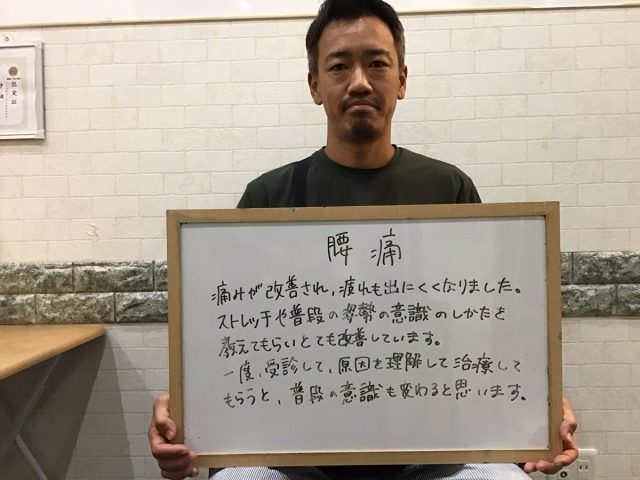 認定証
腰痛
痛みが改善され、疲れも出にくくなりました。
ストレッチや普段の姿勢の意識のしかたを
教えてもらいとても改善しています。
一度、受診して、原因を理解して治療して
もらうと、普段の意識も変わると思います。